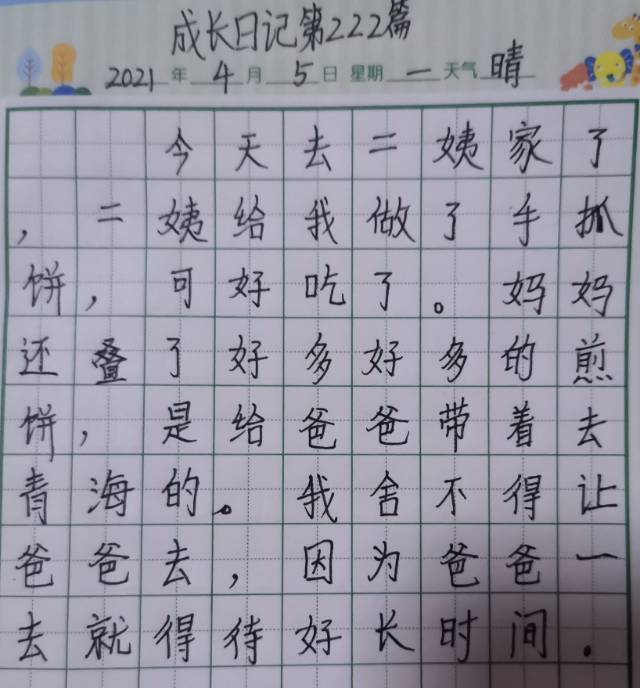 成长日记第222篇
2021年4月5日 星期一 天气 晴
今天去二姨家了
，二姨给我做了手抓
饼，可好吃了。妈妈
还叠了好多好多的煎
饼，是给爸爸带着去
青海的。我舍不得让
爸爸去，因为爸爸一
去就得待好长时间。